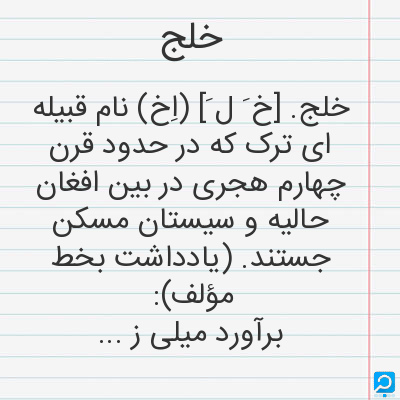 خلج
خلج. [خ َ ل َ] (اِخ) نام قبیله
ای ترک که در حدود قرن
چهارم هجری در بین افغان
حالیه و سیستان مسکن
جستند. (یادداشت بخط
مؤلف):
برآورد میلی ز ...